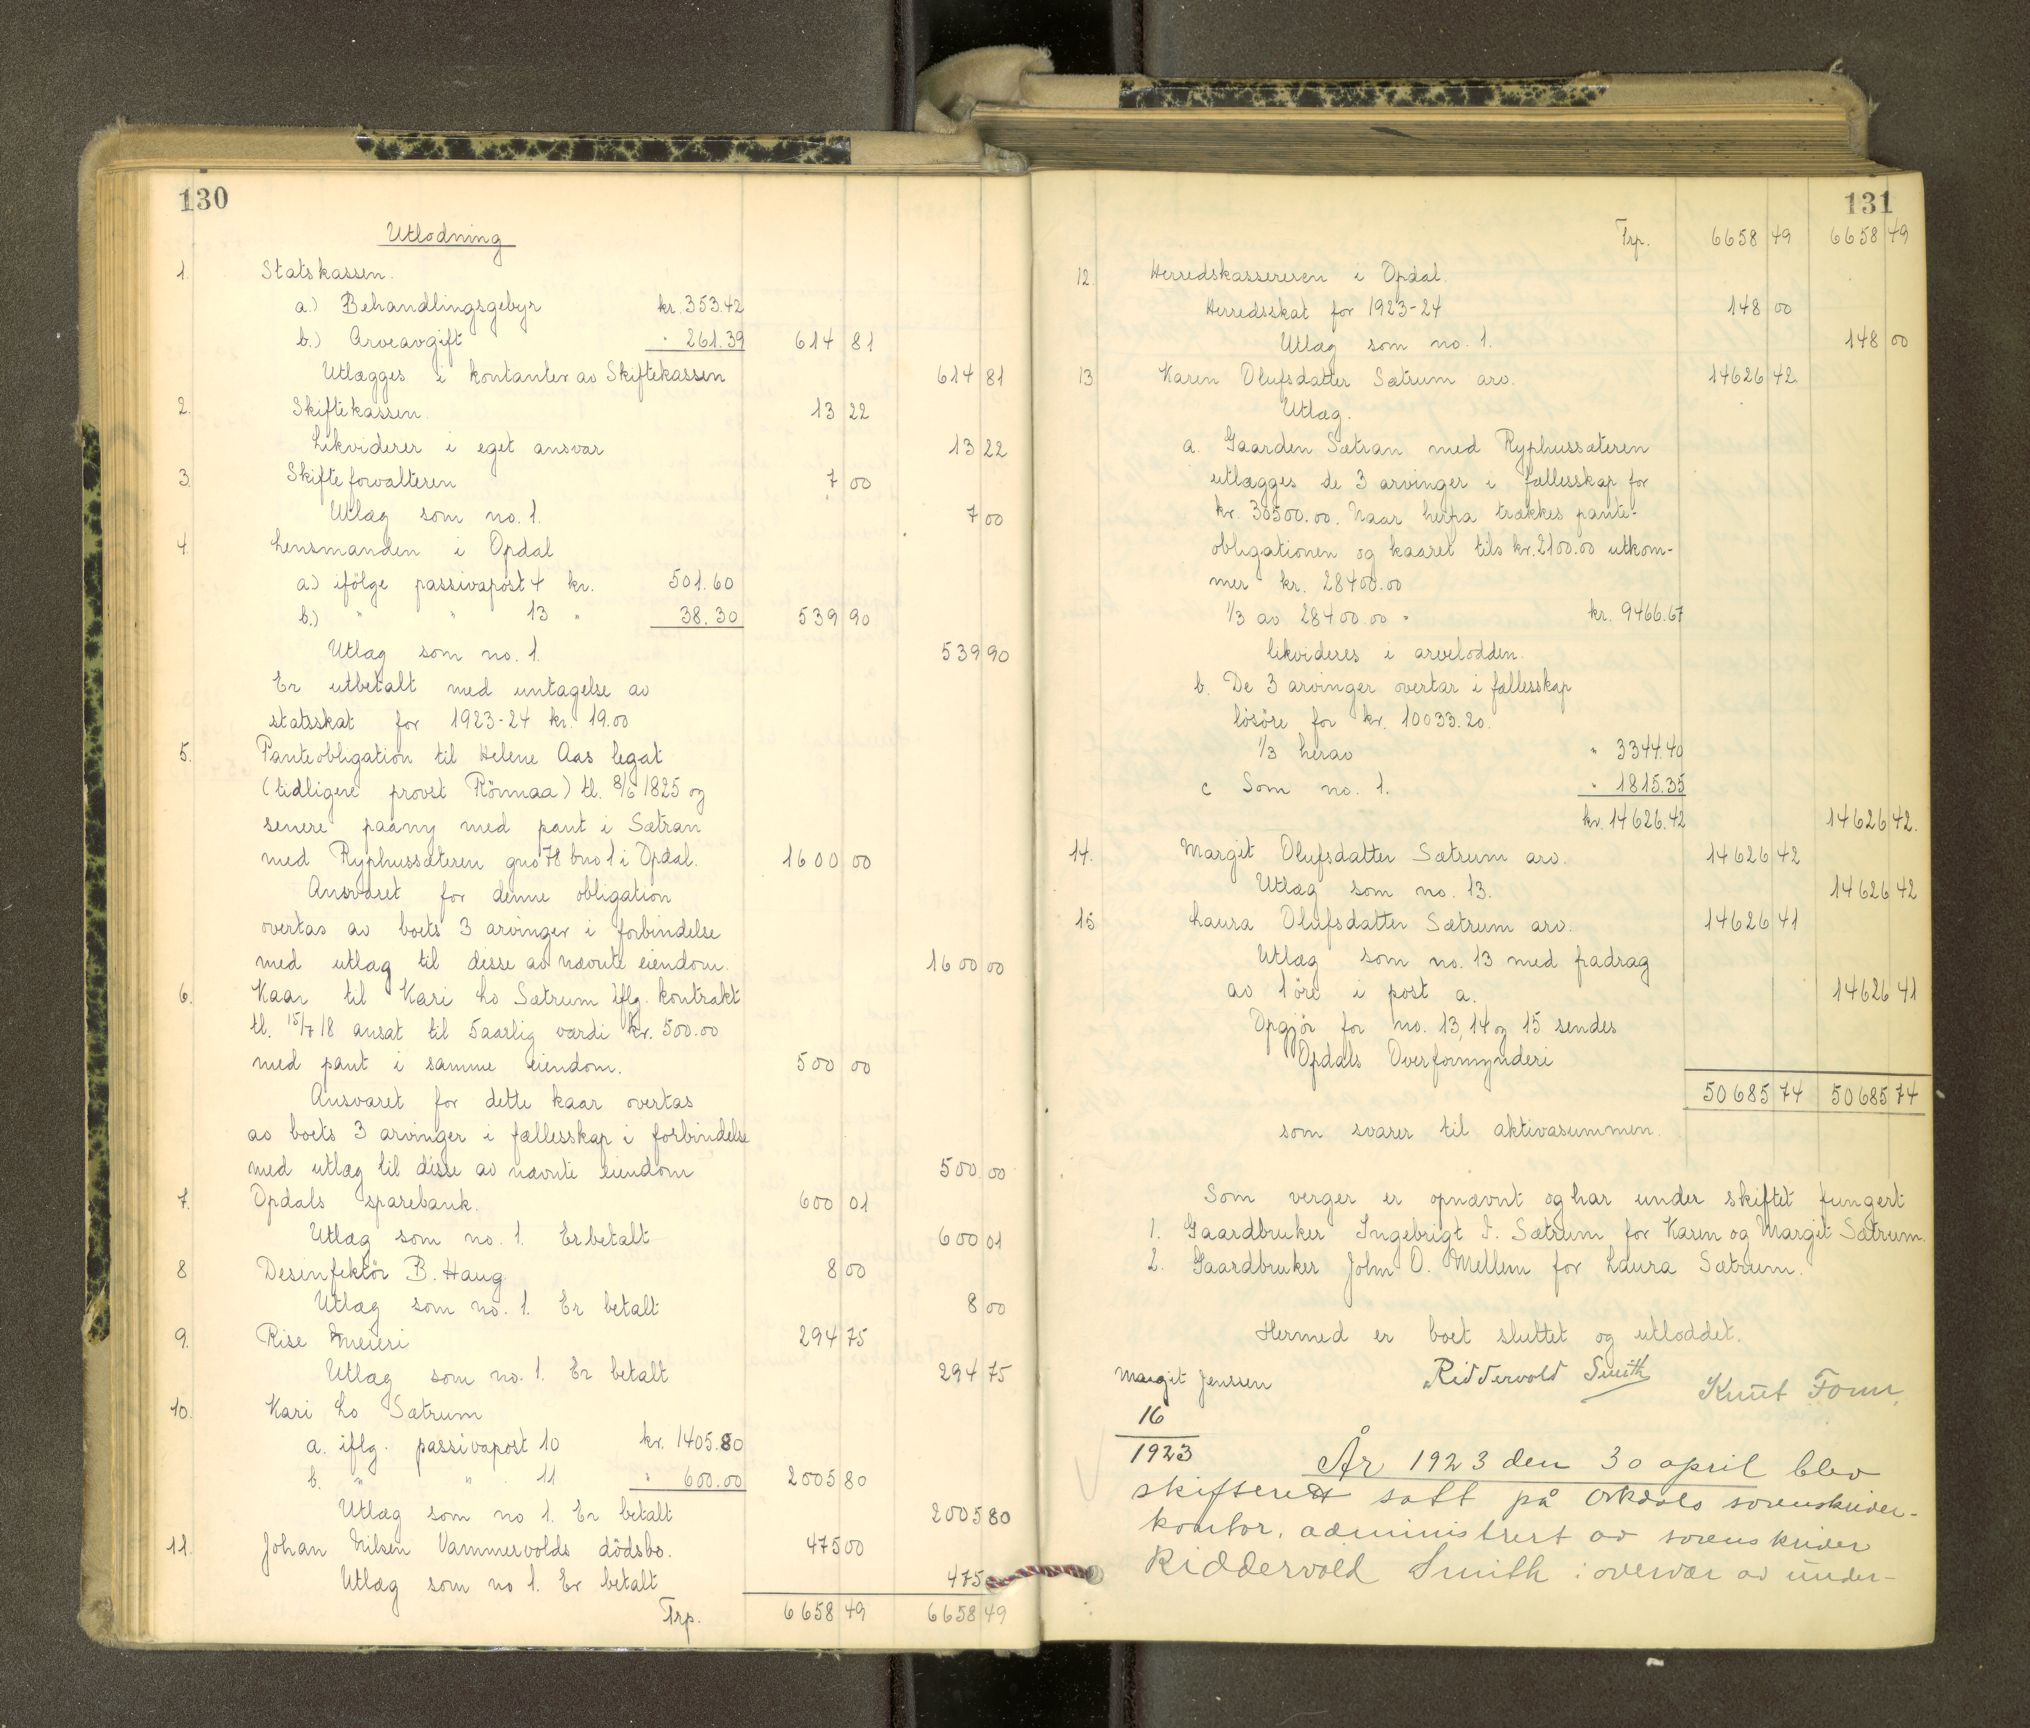 130
Utlodning
1. Statskassen.
a.) Behandlingsgebyr kr. 353.42
b.) Arveavgift " 261.39 614 81
Utlægges i kontanter av Skiftekassen 614 81
2. Skiftekassen. 13 22
Likviderer i eget ansvar 13 22
3. Skifteforvalteren 7 00
Utlæg som no. 1. 7 00
4. Lensmanden i Opdal
a.) ifölge passivapost 4 kr. 501.60
b.) " " 13 " 38.30 539 90
Utlæg som no. 1. 539 90
Er utbetalt med untagelse av
statsskat for 1923-24 kr. 19.00
5. Panteobligation til Helene Aas legat
(tidligere provst Rönnaa) tl. 8/6 1825 og
senere paany med pant i Sætran
med Ryphussæteren gno 78 bno 1 i Opdal. 1600 00
Ansvaret for denne obligation
overtas av boets 3 arvinger i forbindelse
med utlæg til disse av nævnte eiendom. 1600 00
6. Kaar til Kari Lo Sætrum iflg. kontrakt
tl. 15/7 18 ansat til 5aarlig værdi kr. 500.00
med pant i samme eiendom. 500 00
Ansvaret for dette kaar overtas
av boets 3 arvinger i fællesskap i forbindelse
med utlæg til disse av nævnte eiendom 500.00
7. Opdals sparebank. 600 01
Utlæg som no. 1. Er betalt 600 01
8 Desinfektör B. Haug 8 00
Utlæg som no. 1. Er betalt 8 00
9. Rise meieri 294 75
Utlæg som no. 1. Er betalt 294 75
10. Kari Lo Sætrum
a. iflg. passivapost 10 kr. 1405.80
b. " " 11 " 600.00 2005 80
Utlæg som no 1. Er betalt 2005 80
11. Johan Nilsen Vammervolds dödsbo. 475 00
Utlæg som no 1. Er betalt 475
Trp. 6658 49 6658 49
131
Trp. 6658 49 6658 49
12. Herredskassereren i Opdal.
Herredsskat for 1923-24 148 00
Utlæg som no. 1. 148 00
13 Karen Olufsdatter Sætrum arv. 14626 42
Utlæg.
a. Gaarden Sætran med Ryphussæteren
utlægges de 3 arvinger i fællesskap for
kr. 30500.00. Naar herfra trækkes pante-
obligationen og kaaret tils kr. 2100.00 utkom-
mer kr. 28400.00
1/3 av 28400.00 = kr. 9466.67
likvideres i arvelodden.
b. De 3 arvinger overtar i fællesskap
lösöre for kr. 10033.20.
1/3 herav " 3344.40
c Som no. 1. " 1815.35
kr. 14626.42 14626 42.
14. Margit Olufsdatter Sætrum arv. 14626 42
Utlæg som no. 13. 14626 42
15 Laura Olufsdatter Sætrum arv. 14626 41
Utlæg som no. 13 med fradrag
av 1 öre i post a. 14626 41
Opgjör for no. 13, 14 og 15 sendes
Opdals Overformynderi
50685 74 50685 74
som svarer til aktivasummen.
Som verger er opnævnt og har under skiftet fungert
1. Gaardbruker Ingebrigt I. Sætrum for Karen og Margit Sætrum.
2. Gaardbruker John O. Mellem for Laura Sætrum.
Hermed er boet sluttet og utloddet.
Margit Jenssen Riddervold Smith Knut Fonn.
16
1923 År 1923 den 30 april blev
skifterett satt på Orkdals sorenskriver-
kontor, administrert av sorenskriver
Riddervold Smith i overvær av under-